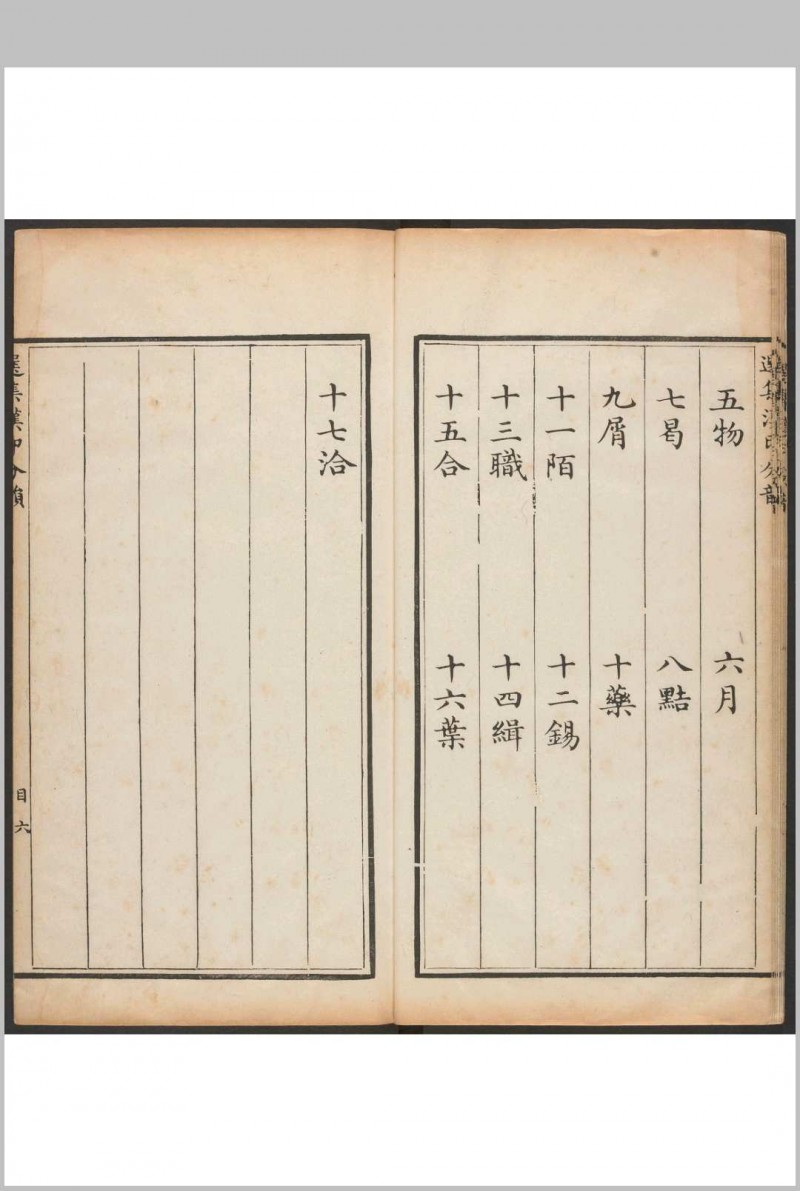 五物
六月
七曷
八黠
九屑
十藥
十一陌
十二錫
十三職
十四緝
十五合
十六葉
十七洽
選集漢印分韻
目六